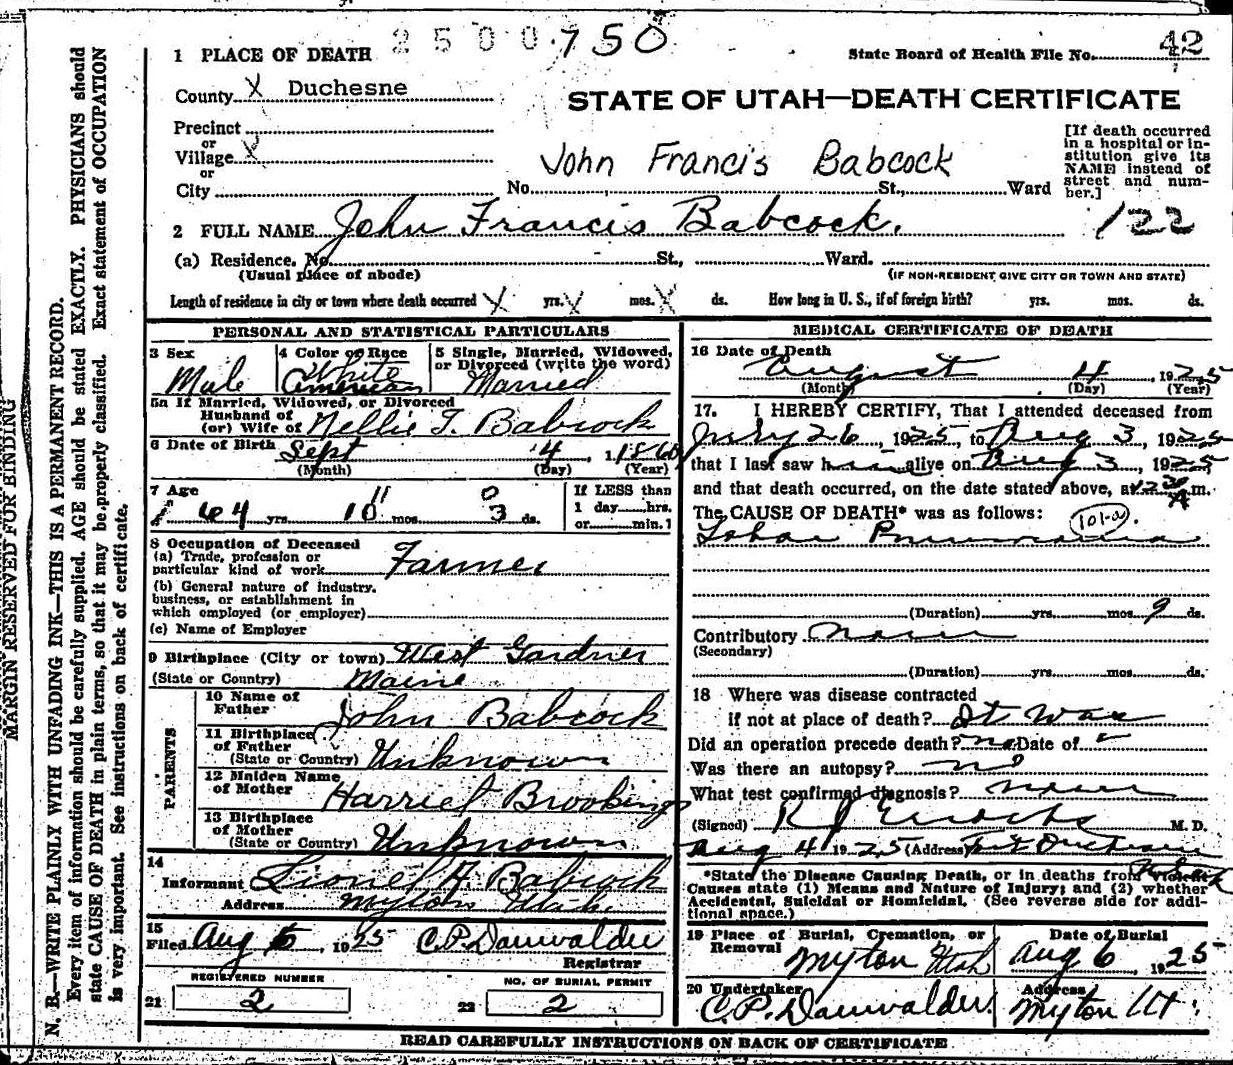 2500.750
1 PLACE OF DEATH
State Board of Health File No. 42
County X Duchesne
STATE OF UTAH—DEATH CERTIFICATE
Precinct
or
Village X
or
City
John Francis Babcock
No. St., Ward
[If death occurred in a hospital or institution give its NAME instead of street and number.]
2 FULL NAME John Francis Babcock.
122
(a) Residence. No. St., Ward.
(Usual place of abode)
(IF NON-RESIDENT GIVE CITY OR TOWN AND STATE)
Length of residence in city or town where death occurred X yrs. X mos. X ds. How long in U. S., if of foreign birth? yrs. mos. ds.
PERSONAL AND STATISTICAL PARTICULARS
3 Sex
Male
4 Color or Race
White
American
5 Single, Married, Widowed, or Divorced (write the word)
Married
5a If Married, Widowed, or Divorced
Husband of
(or) Wife of Nellie T. Babcock
6 Date of Birth Sept 4, 1860
(Month) (Day) (Year)
7 Age
11 0
64 yrs. 10 mos. 3 ds.
If LESS than
1 day hrs.
or min.?
8 Occupation of Deceased
(a) Trade, profession or
particular kind of work Farmer
(b) General nature of industry,
business, or establishment in
which employed (or employer)
(c) Name of Employer
9 Birthplace (City or town) West Gardner
(State or Country) Maine
PARENTS
10 Name of
Father John Babcock
11 Birthplace
of Father
(State or Country) Unknown
12 Maiden Name
of Mother Harriet Brookings
13 Birthplace
of Mother
(State or Country) Unknown
14
Informant Lionel F. Babcock
Address Myton Utah.
15
Filed Aug 5, 1925 C.P. Dauwalder
Registrar
REGISTERED NUMBER
21 2
NO. OF BURIAL PERMIT
22 2
MEDICAL CERTIFICATE OF DEATH
16 Date of Death
August 4, 1925
(Month) (Day) (Year)
17. I HEREBY CERTIFY, That I attended deceased from
July 26, 1925, to Aug 3, 1925
that I last saw him alive on Aug 3, 1925
and that death occurred, on the date stated above, at 12 30 A m.
The CAUSE OF DEATH* was as follows: 101-a
Lobar Pneumonia
(Duration) yrs. mos. 9 ds.
Contributory None
(Secondary)
(Duration) yrs. mos. ds.
18 Where was disease contracted
if not at place of death? It was
Did an operation precede death? no Date of
Was there an autopsy? no
What test confirmed diagnosis? none
(Signed) R J Enochs M. D.
Aug 4 1925 (Address) Fort Duchesne
Utah
*State the Disease Causing Death, or in deaths from Violent
Causes state (1) Means and Nature of Injury; and (2) whether
Accidental, Suicidal or Homicidal. (See reverse side for additional space.)
19 Place of Burial, Cremation, or
Removal
Myton Utah
Date of Burial
Aug 6, 1925
20 Undertaker
C.P. Dauwalder.
Address
Myton Ut.
READ CAREFULLY INSTRUCTIONS ON BACK OF CERTIFICATE
MARGIN RESERVED FOR BINDING
N. B.—WRITE PLAINLY WITH UNFADING INK—THIS IS A PERMANENT RECORD.
Every item of information should be carefully supplied. AGE should be stated EXACTLY. PHYSICIANS should
state CAUSE OF DEATH in plain terms, so that it may be properly classified. Exact statement of OCCUPATION
is very important. See instructions on back of certificate.